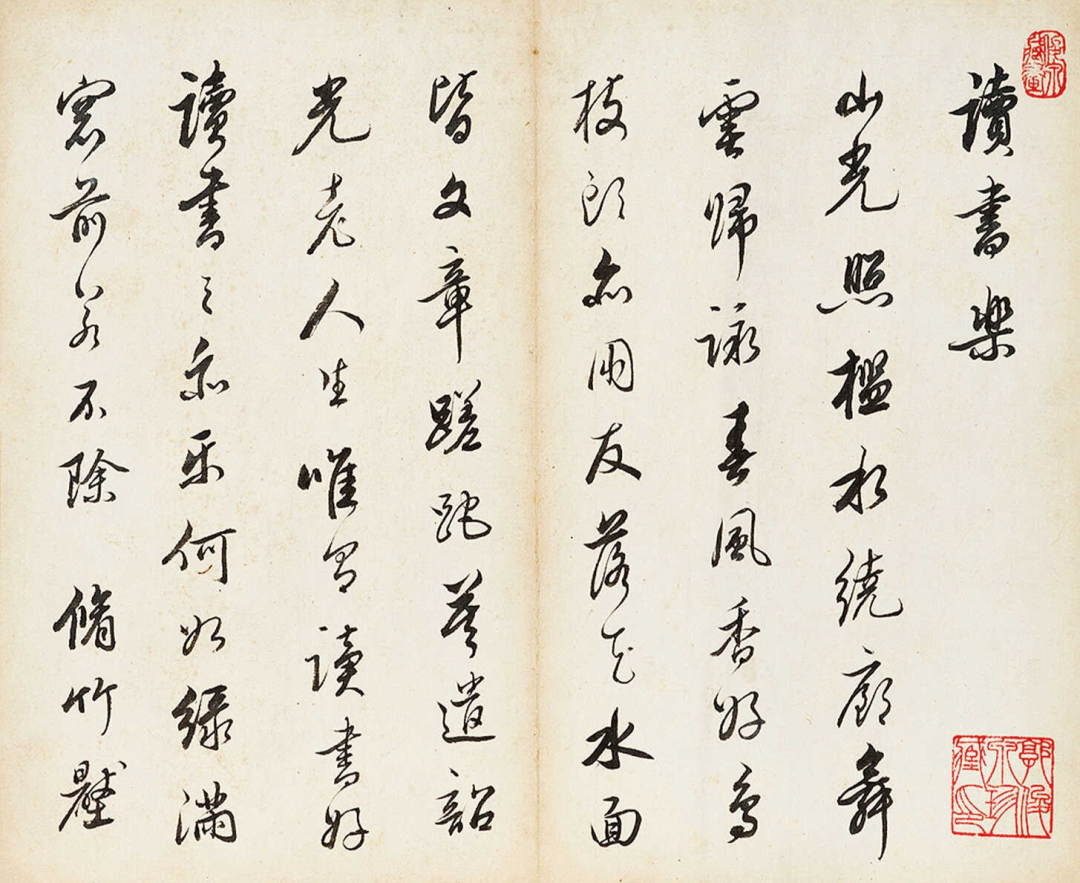 讀書樂
山光照檻水繞廊舞
雲歸詠春風香好鳥
枝頭亦朋友落花水面
皆文章蹉跎莫遣韶
光老人生唯有讀書好
讀書之樂樂何如綠滿
窓前草不除 脩竹壓